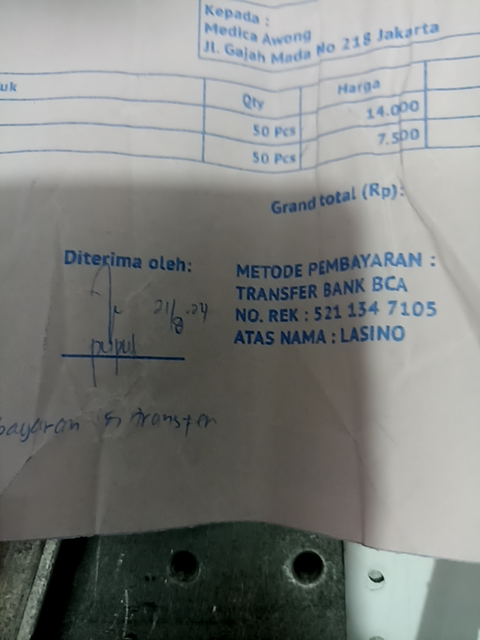 Kepada :
Medica Awong
Jl. Gajah Mada No 218 Jakarta
uk Qty Harga
50 Pcs 14.000
50 Pcs 7.500
Grand total (Rp):
Diterima oleh:
21/8.24
pupul
METODE PEMBAYARAN :
TRANSFER BANK BCA
NO. REK : 521 134 7105
ATAS NAMA : LASINO
bayaran di transfer